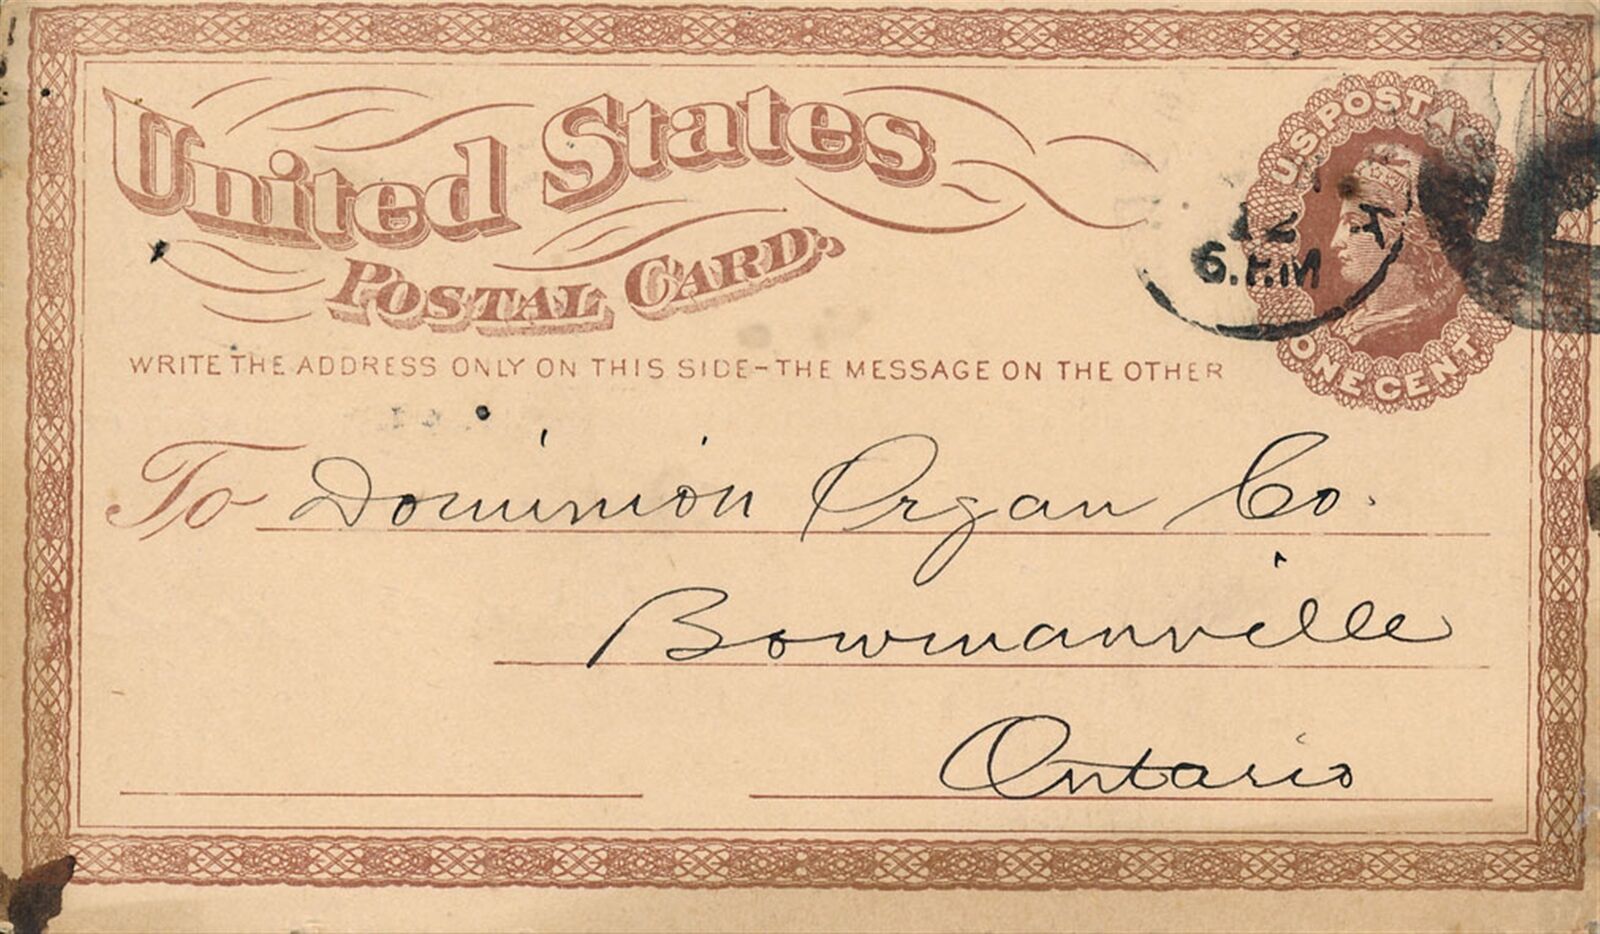 United States
POSTAL CARD.
U.S. POSTAGE
12
6. P.M
ONE CENT
WRITE THE ADDRESS ONLY ON THIS SIDE-THE MESSAGE ON THE OTHER
To Dominion Organ Co.
Bowmanville
Ontario